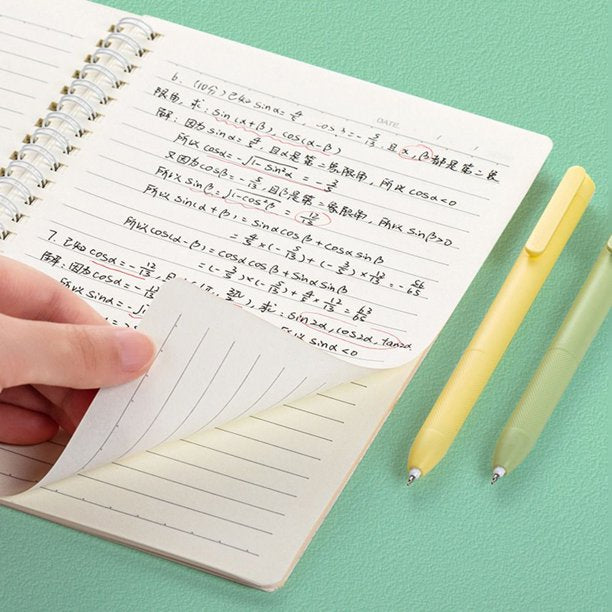 DATE / /
6. (10分)已知 sinα=4/5, cosβ=-5/13, 且α,β都是第二象
限角, 求: sin(α+β), cos(α-β)
解: 因为 sinα=4/5, 且α是第二象限角, 所以 cosα<0
所以 cosα=-√1-sin²α=-3/5
又因为cosβ=-5/13, 且β是第二象限角, 所以 sinβ>0.
所以 sinβ=√1-cos²β=12/13
所以 sin(α+β)=sinαcosβ+cosαsinβ
=4/5×(-5/13)+(-3/5)×12/13=-56/65
所以cos(α-β)=cosαcosβ+sinαsinβ
=(-3/5)×(-5/13)+4/5×12/13=63/65
7. 已知 cosα=-12/13, 且 , 求: sin2α, cos2α, tan2α
解: 因为cosα=-12/13 所以 sinα<0
所以 sinα=-√1